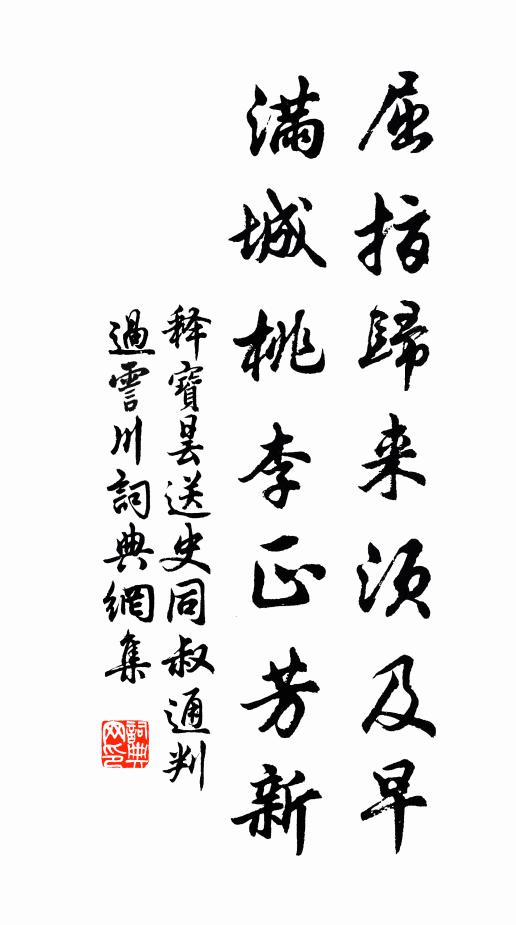 屈指歸来須及早
滿城桃李正芳新
释寶曇送史同叔通判
過霅川詞典網集
詞典网印